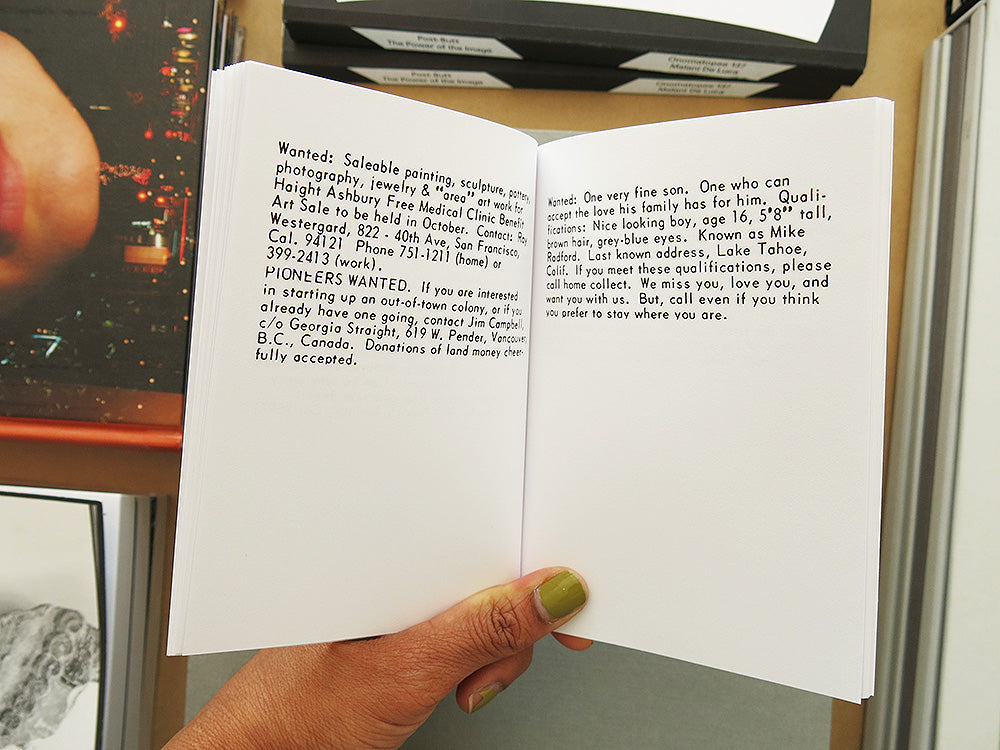 Post-Butt
The Power of the Image
Onomatopee 137
Melani De Luca
Post-Butt
The Power of the Image
Onomatopee 137
Melani De Luca
Wanted: Saleable painting, sculpture, pottery,
photography, jewelry & "area" art work for
Haight Ashbury Free Medical Clinic Benefit
Art Sale to be held in October. Contact: Ray
Westergard, 822 - 40th Ave, San Francisco,
Cal. 94121 Phone 751-1211 (home) or
399-2413 (work).
PIONEERS WANTED. If you are interested
in starting up an out-of-town colony, or if you
already have one going, contact Jim Campbell,
c/o Georgia Straight, 619 W. Pender, Vancouver
B.C., Canada. Donations of land money cheer-
fully accepted.
Wanted: One very fine son. One who can
accept the love his family has for him. Quali-
fications: Nice looking boy, age 16, 5'8" tall,
brown hair, grey-blue eyes. Known as Mike
Radford. Last known address, Lake Tahoe,
Calif. If you meet these qualifications, please
call home collect. We miss you, love you, and
want you with us. But, call even if you think
you prefer to stay where you are.